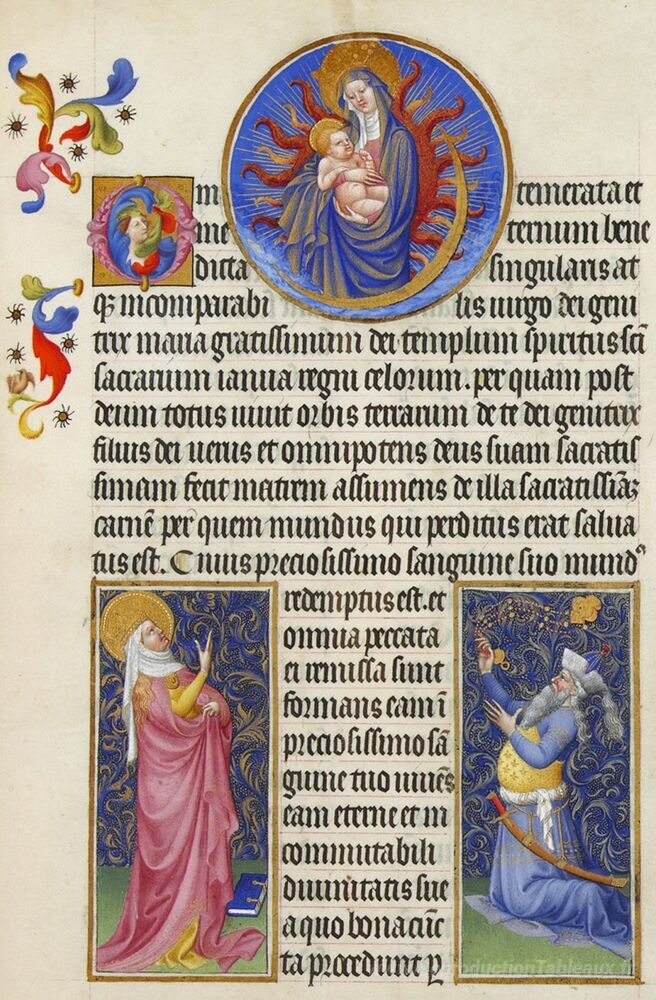 O m temerata et
me ternum bene
dicta singularis at
qȝ incomparabi lis uirgo dei geni
trix maria gratissimum dei templum spiritus sc̄i
sacrarium ianua regni celorum. per quam post
deum totus uiuit orbis terrarum de te dei genitrix
filius dei uerus et omnipotens deus suam sacratis
simam fecit matrem assumens de illa
carnē per quem mundus qui perditus erat salua
tus est. Cuius preciosissimo sanguine suo mundꝰ
redemptus est. et
omnia peccata
ei remissa sunt
formans eam ī
preciosissimo sā
guine tuo
eam eterne et in
commutabili
diuinitatis sue
a quo bona cūc
ta procedunt ꝑ
ductionTableaux.f